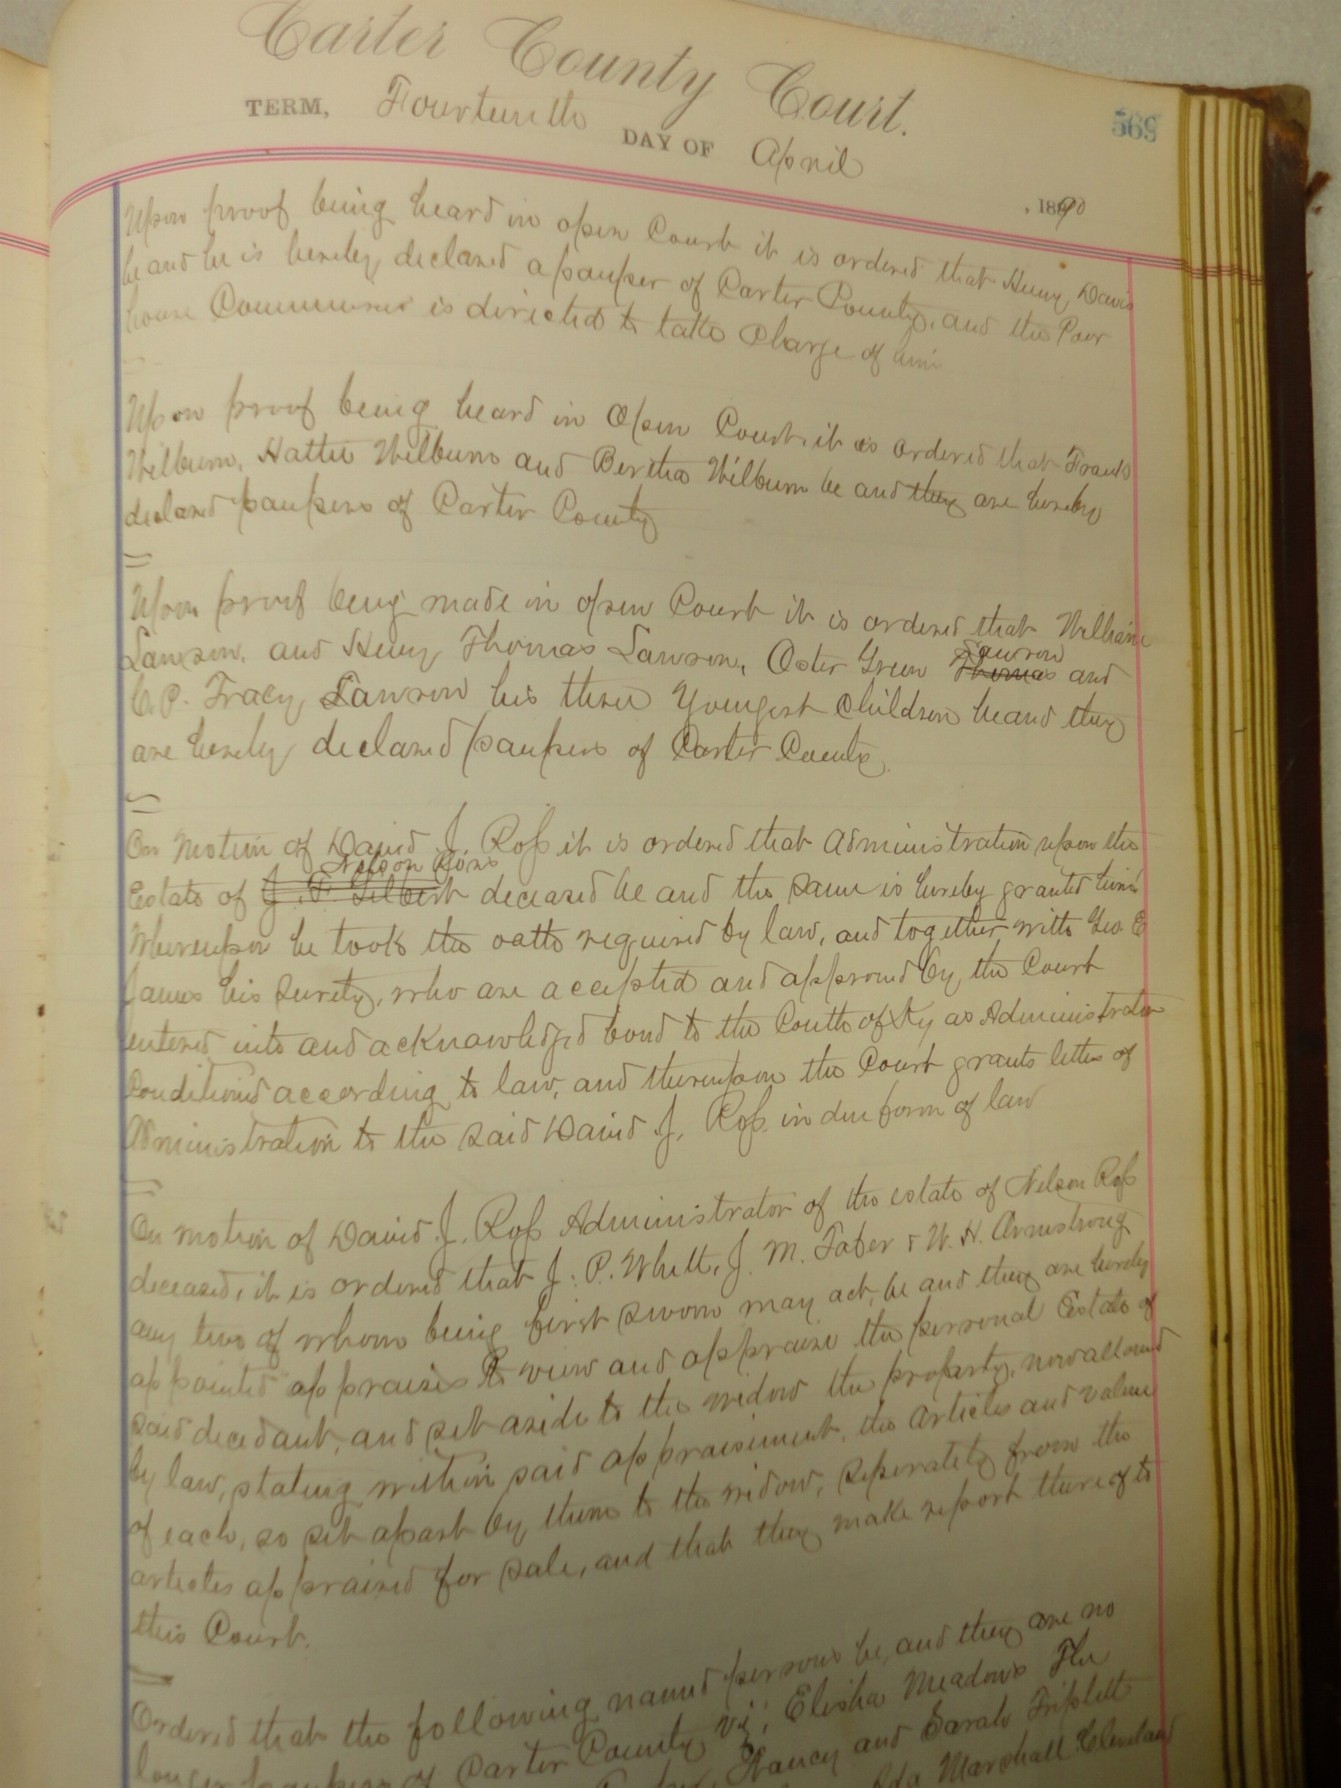 Carter County Court.
569
TERM, Fourteenth DAY OF April , 1890
Upon proof being heard in open Court it is ordered that Henry Davis
be and he is hereby declared a pauper of Carter County, and the Poor
house Commissioner is directed to take charge of him
Upon proof being heard in Open Court, it is ordered that Frank
Wilburn, Hattie Wilburn and Bertha Wilburn be and they are hereby
declared paupers of Carter County
Upon proof being made in open Court it is ordered that William
Lawson, and Henry Thomas Lawson, Oster Green Thomas Lawson and
C. P. Tracy Lawson his three Youngest children be and they
are hereby declared paupers of Carter County.
On Motion of David J. Ross it is ordered that Administration upon the
Nelson Ross
Estate of J. F. Gilbert deceased be and the same is hereby granted him
Whereupon he took the oath required by law, and together with Geo. E
James his Surety, who are accepted and approved by the Court
entered into and acknowledged bond to the Comth of Ky as Administrator
Conditioned according to law, and thereupon the Court grants letters of
Administration to the said David J. Ross in due form of law
On motion of David J. Ross Administrator of the estate of Nelson Ross
deceased, it is ordered that J. P. Whitt, J. M. Faber & W. H. Armstrong
any two of whom being first sworn may act, be and they are hereby
appointed appraisers to view and appraise the personal Estate of
said decedant, and set aside to the widow the property, now allowed
by law, stating within said appraisement, the articles and value
of each, so set apart by them to the widow, seperately from the
articles appraised for sale, and that they make report thereof to
this Court.
Ordered that the following named persons be, and they are no
longer paupers of Carter County viz; Elisha Meadows
Nancy and Sarah Triplett
Ada Marshall Cleveland